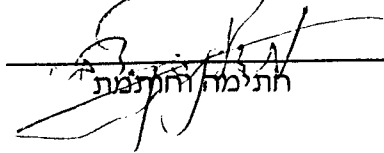 חתימה וחותמת